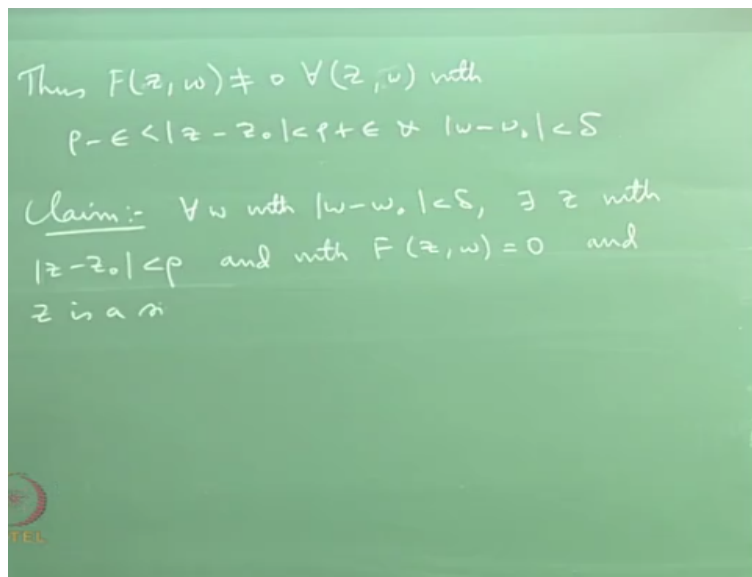 Thus F(z, w) ≠ 0 ∀(z, w) with
ρ-ϵ <|z - z₀|< ρ+ϵ & |w-w₀|<δ
Claim:- ∀ w with |w-w₀|<δ, ∃ z with
|z-z₀|<ρ and with F(z,w)=0 and
z is a si
TEL